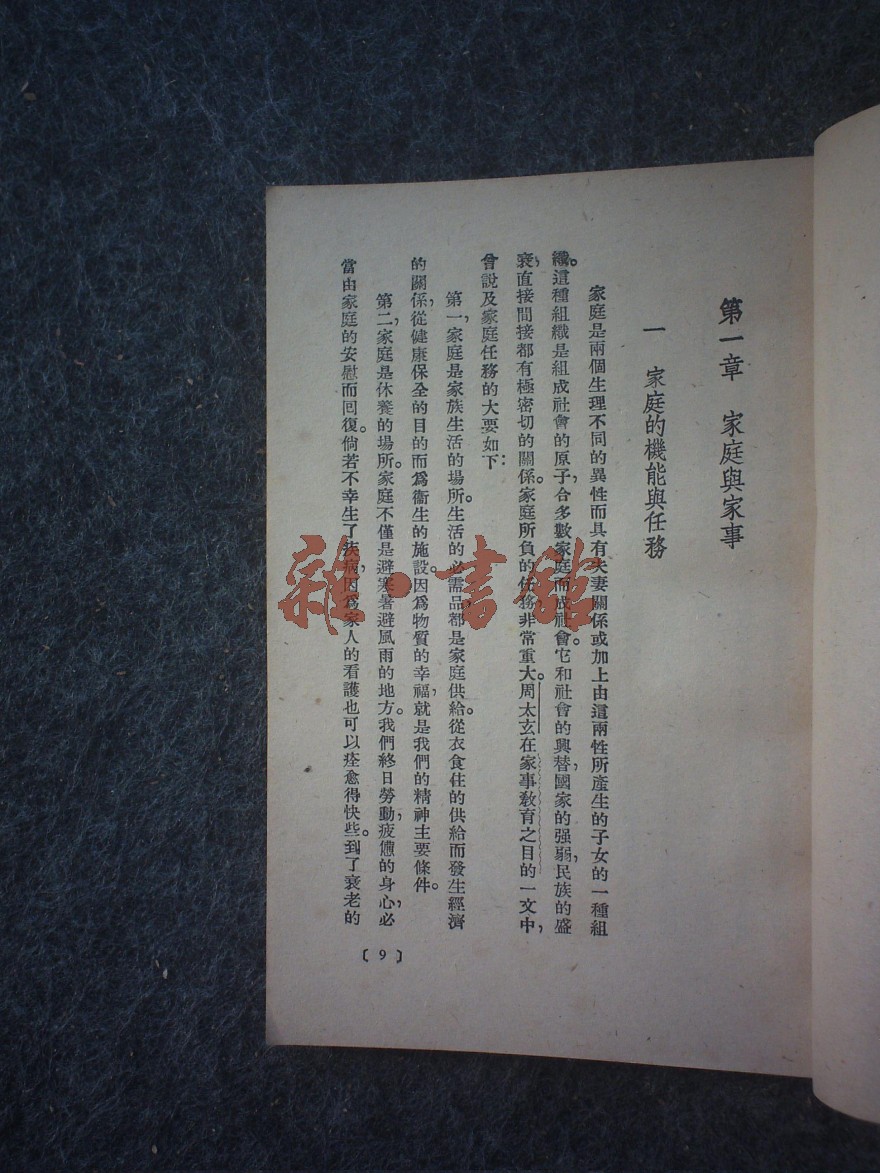 第一章　家庭與家事
一　家庭的機能與任務
家庭是兩個生理不同的異性而具有夫妻關係或加上由這兩性所產生的子女的一種組
織。這種組織是組成社會的原子，合多數家庭而成社會。它和社會的興替，國家的强弱，民族的盛
衰，直接間接都有極密切的關係。家庭所負的任務非常重大。周太玄在家事敎育之目的一文中，
曾說及家庭任務的大要如下：
第一，家庭是家族生活的場所。生活的必需品，都是家庭供給。從衣食住的供給而發生經濟
的關係，從健康保全的目的而爲衞生的施設。因爲物質的幸福，就是我們的精神主要條件。
第二，家庭是休養的場所。家庭不僅是避寒暑避風雨的地方。我們終日勞動，疲憊的身心，必
當由家庭的安慰而回復。倘若不幸生了疾病，因爲家人的看護也可以痊愈得快些。到了衰老的
〔9〕
雜·書館